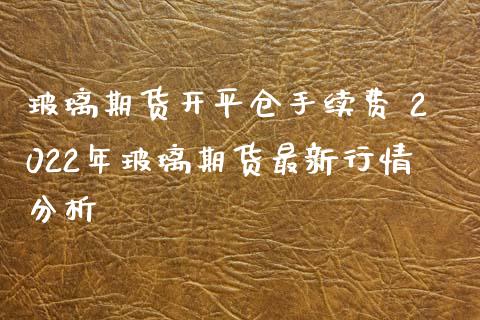 玻璃期货开平仓手续费 2
022年玻璃期货最新行情
分析